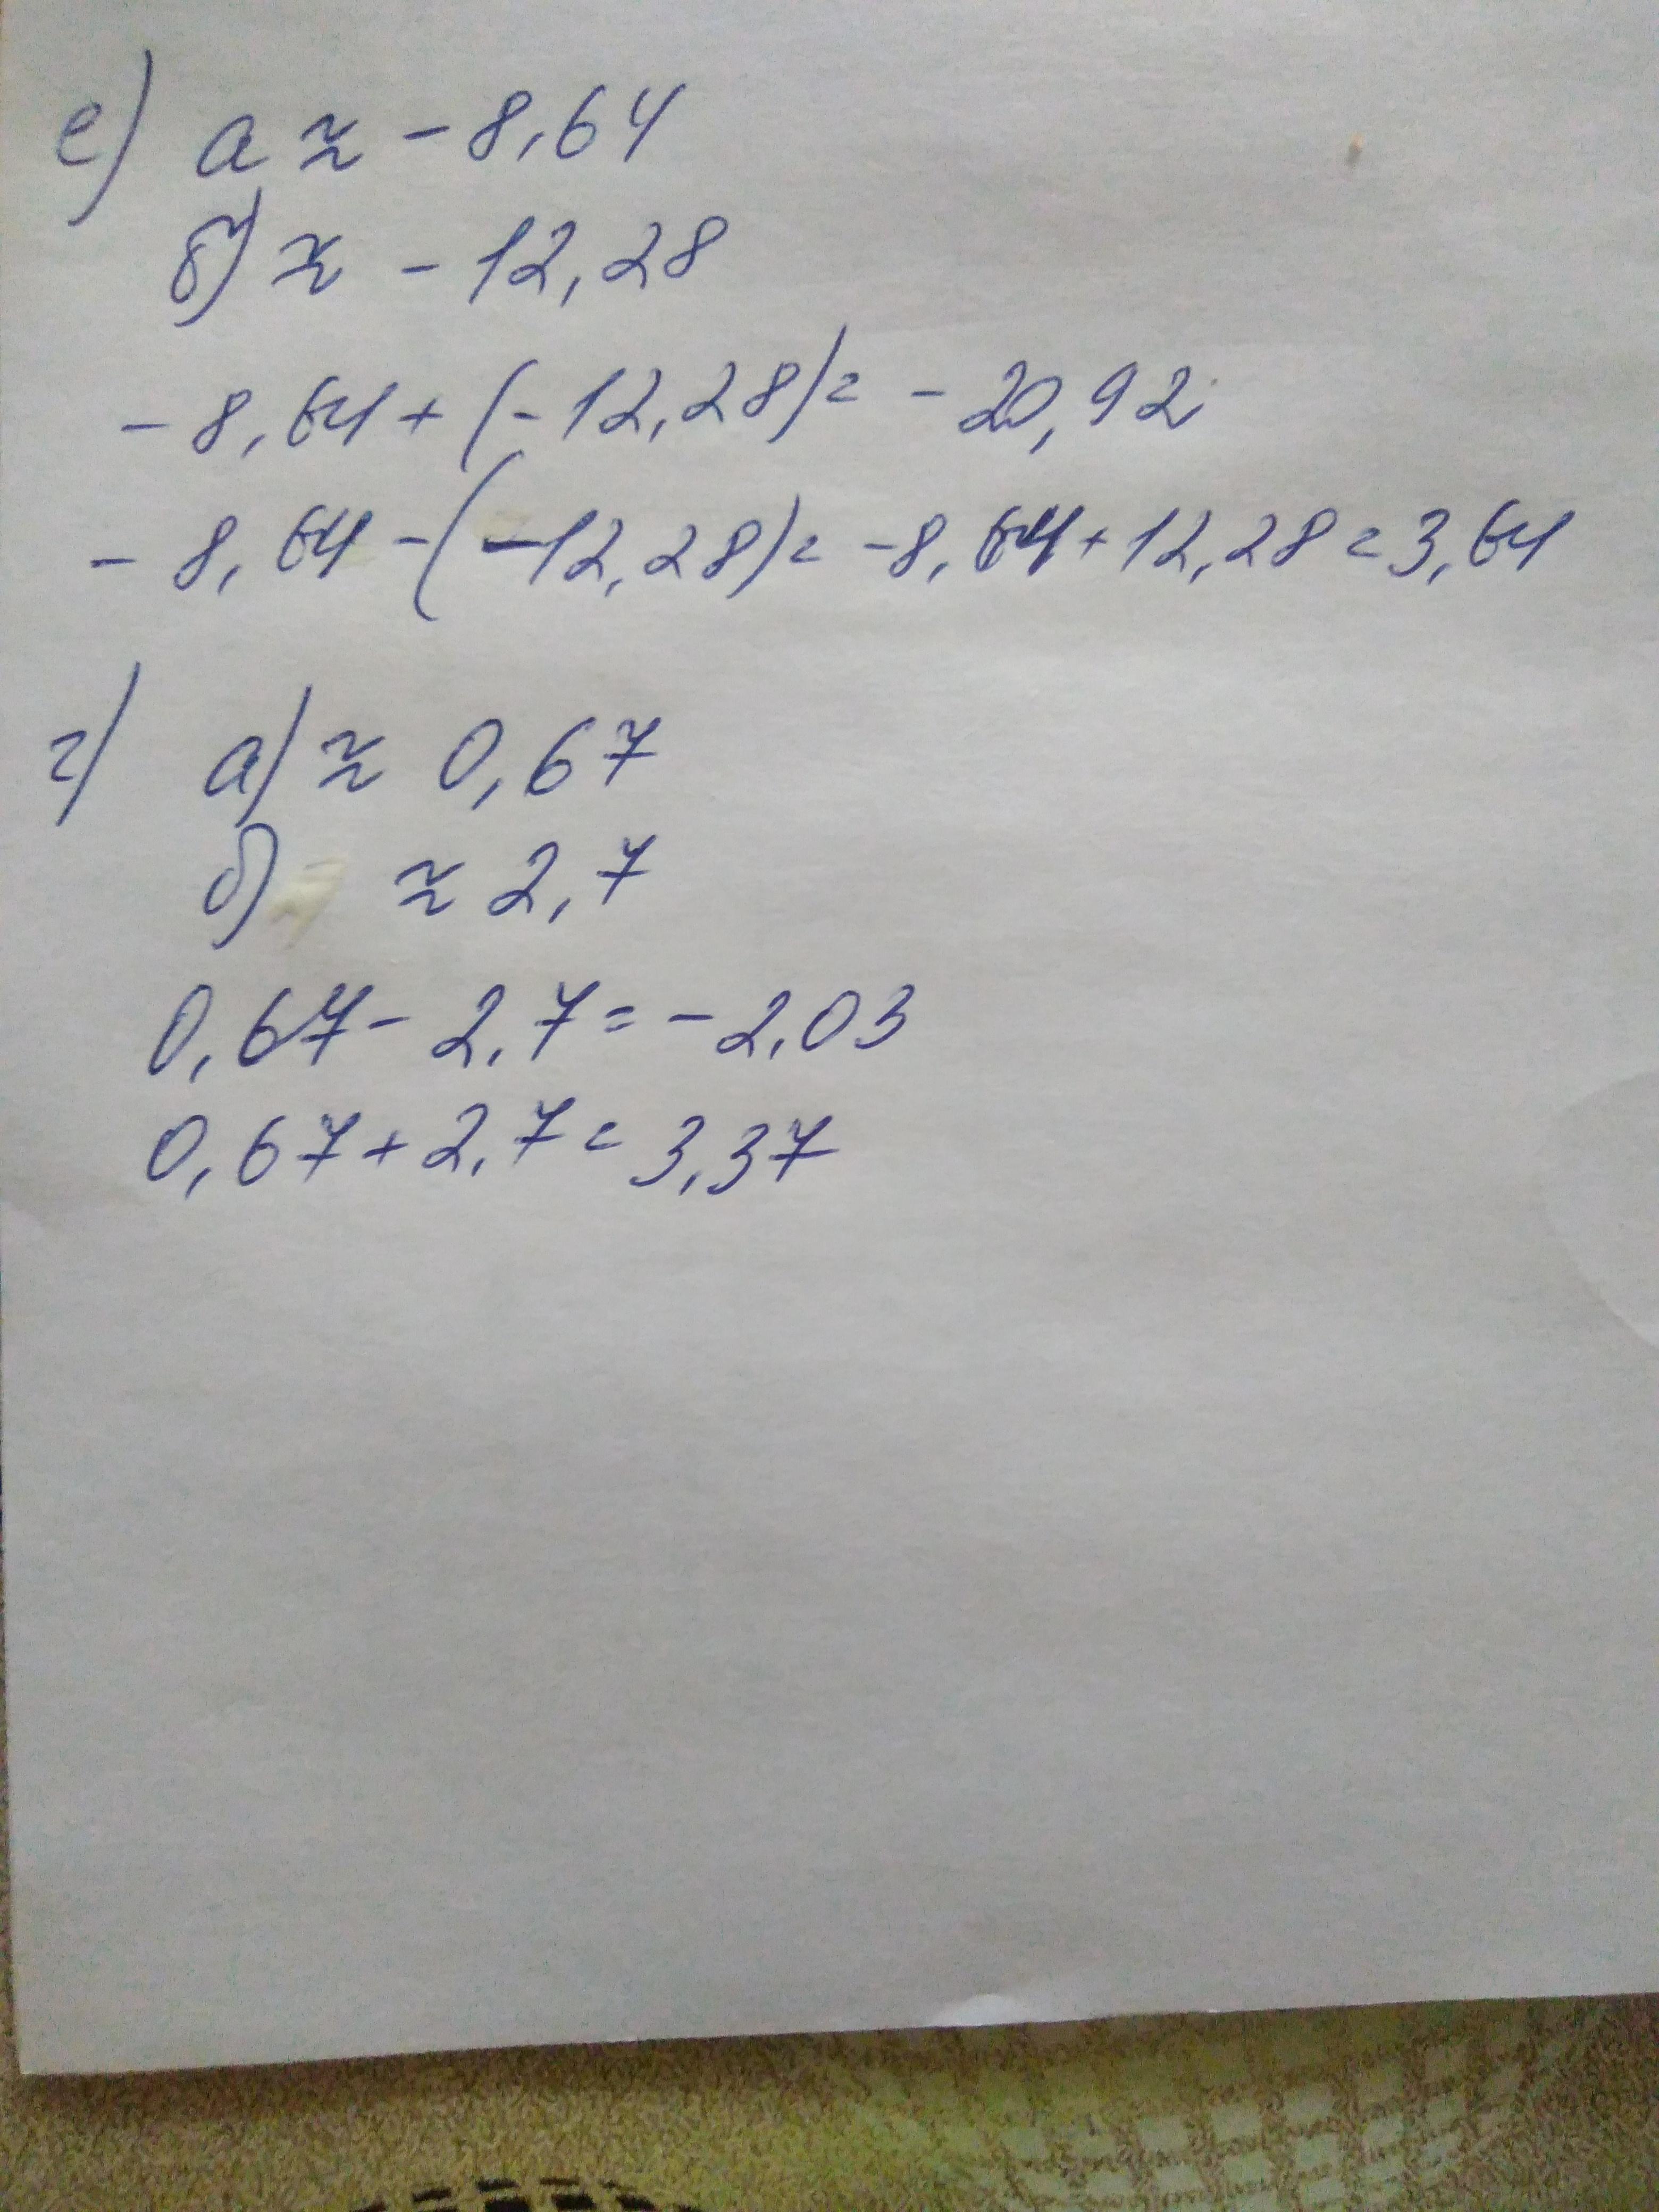 е) а ≈ - 8,64
б) ≈ - 12,28
- 8,64 + (- 12,28) = - 20,92
- 8,64 - (-12,28) = -8,64 + 12,28 = 3,64
г) а) ≈ 0,67
б) ≈ 2,7
0,67 - 2,7 = - 2,03
0,67 + 2,7 = 3,37